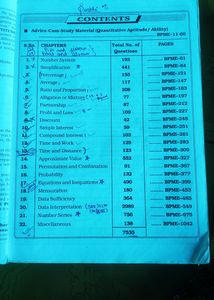 CONTENTS
Advice Cum Study Material (Quantitative Aptitude / Ability)
BPME-11-60
S.No. CHAPTERS Total No. of Questions PAGES
1. Number System 193 BPME-61
2. Simplification 441 BPME-84
3. Percentage 155 BPME-121
4. Average 117 BPME-147
5. Ratio and Proportion 208
6. Alligation or Mixture 77 BPME-197
7. Partnership 87 BPME-212
8. Profit and Loss 109 BPME-227
9. Discount 42 BPME-248
10. Simple Interest 59
11. Compound Interest 103
12. Time and Work 129 BPME-283
13. Time and Distance 123 BPME-303
14. Approximate Value 552 BPME-327
15. Permutation and Combination 91 BPME-367
16. Probability 132 BPME-377
17. Equations and Inequations 490 BPME-399
18. Mensuration 180 BPME-453
19. Data Sufficiency 364 BPME-485
20. Data Interpretation 2989 BPME-549
21. Number Series 756 BPME-975
22. Miscellaneous 138 BPME-1042
7535